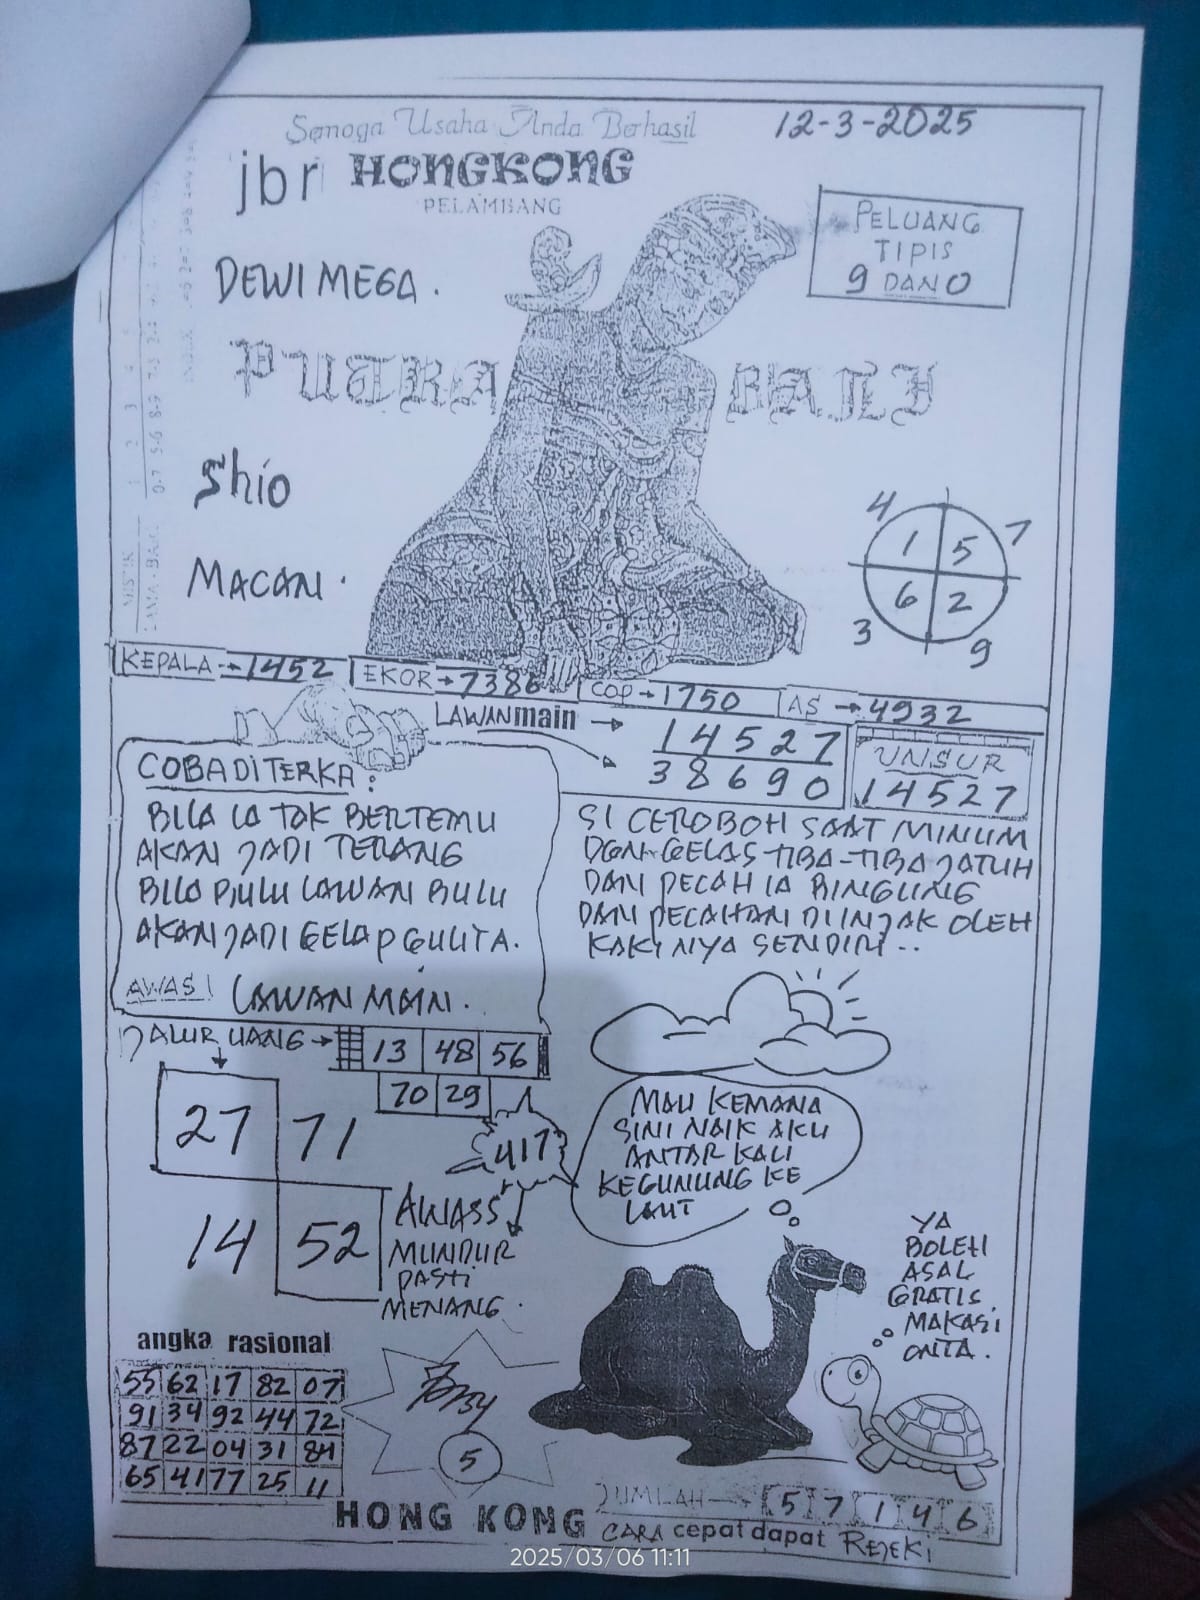 Semoga Usaha Anda Berhasil
12-3-2025
jbr HONGKONG
PELAMBANG
PELUANG
TIPIS
9 DAN 0
DEWI MEGA.
PUTRA BALI
Shio
MACAN.
4 1 5 7
3 6 2 9
KEPALA → 1452
EKOR → 7386
COP → 1750
AS → 4932
LAWAN main → 14527
38690
UNSUR
14527
COBA DITERKA:
BILA IA TAK BERTEMU
AKAN JADI TERANG
BILA BULU LAWAN BULU
AKAN JADI GELAP GULITA.
AWAS! LAWAN MAIN.
SI CEROBOH SAAT MINUM
DGN GELAS TIBA-TIBA JATUH
DAN PECAH IA BINGUNG
DAN PECAHAN DI INJAK OLEH
KAKINYA SENDIRI..
JALUR UANG → 13 48 56
70 29
27 71
14 52
417
AWASS
MUNDUR
PASTI
MENANG.
MAU KEMANA
SINI NAIK AKU
ANTAR KALI
KEGUNUNG KE
LAUT
YA
BOLEH
ASAL
GRATIS.
MAKASI
ONTA.
angka rasional
55 62 17 82 07
91 34 92 44 72
87 22 04 31 84
65 41 77 25 11
5
JUMLAH → 5 7 1 4 6
HONG KONG
CARA cepat dapat REJEKI
2025/03/06 11:11